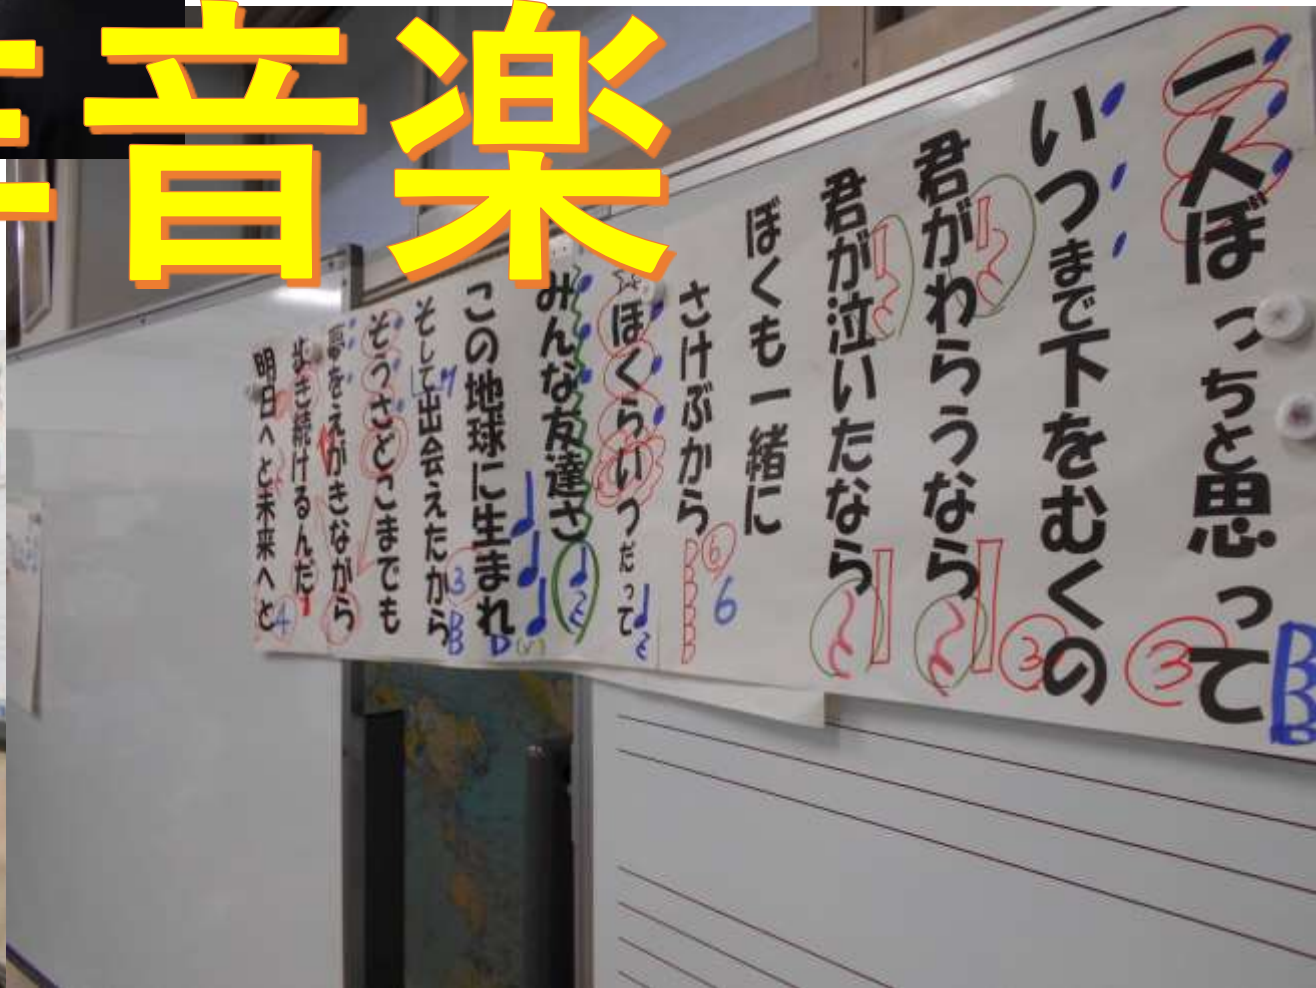 音楽
一人ぼっちと思って
③
BBB
いつまで下をむくの
③
君がわらうなら
君が泣いたなら
ぼくも一緒に
さけぶから
⑥
6
ぼくらいつだって
みんな友達さ
この地球に生まれ
そして出会えたから
3
そうさどこまでも
夢をえがきながら
歩き続けるんだ
明日へと未来へと
4